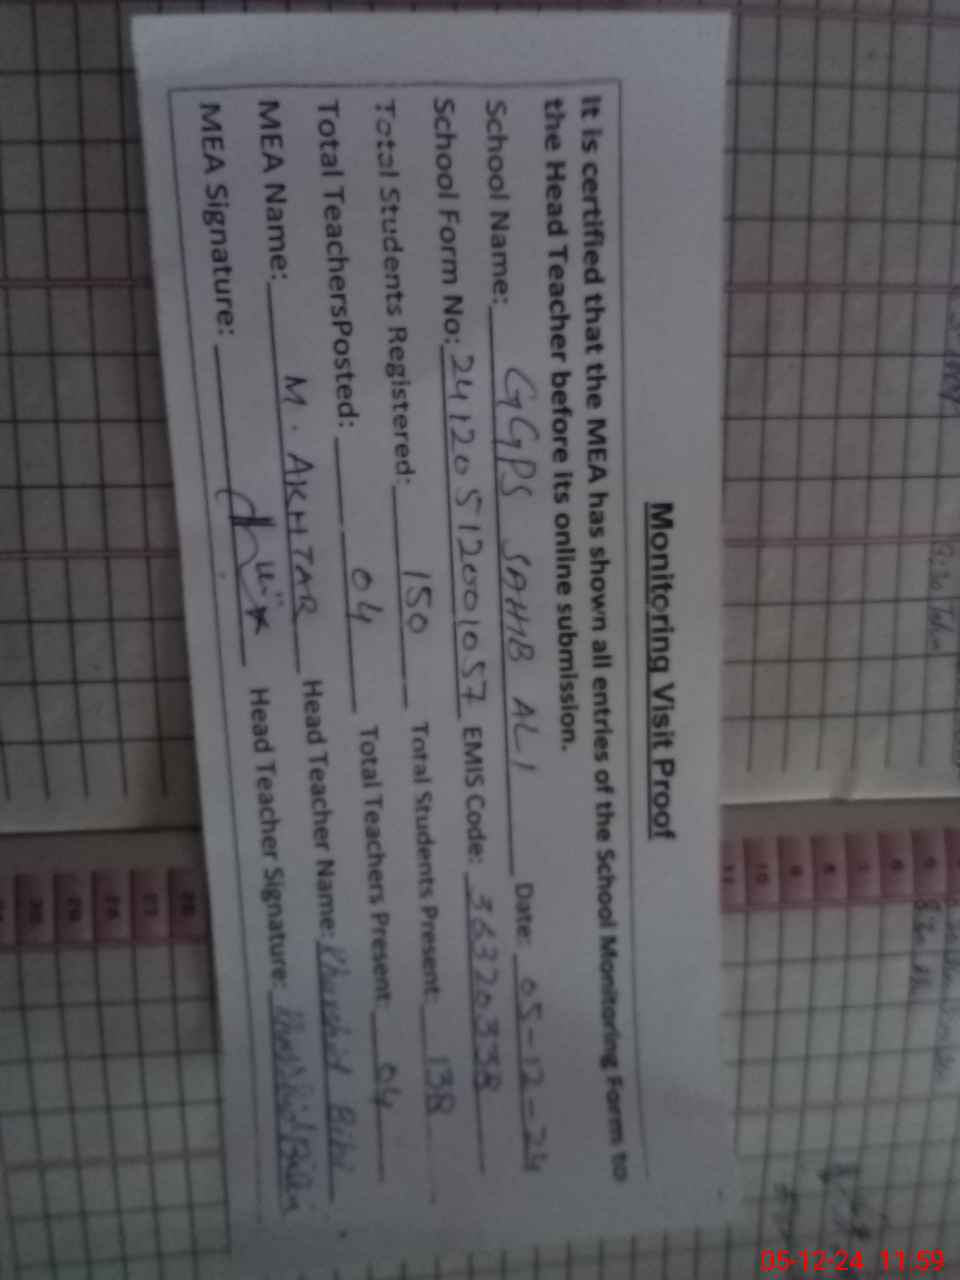 Monitoring Visit Proof
It is certified that the MEA has shown all entries of the School Monitoring Form to
the Head Teacher before its online submission.
School Name: GGPS SAHIB ALI Date: 05-12-24
School Form No: 24120512001057 EMIS Code: 36320338
Total Students Registered: 150 Total Students Present: 138
Total TeachersPosted: 04 Total Teachers Present: 04
MEA Name: M. AKHTAR Head Teacher Name: Khurshid Bibi
MEA Signature: Head Teacher Signature:
05-12-24 11:59